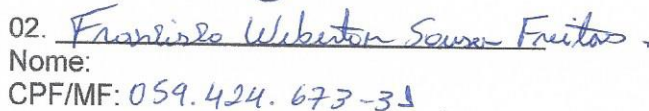 02. Francisco Weberton Sousa Freitas.
Nome:
CPF/MF: 059.424.673-31